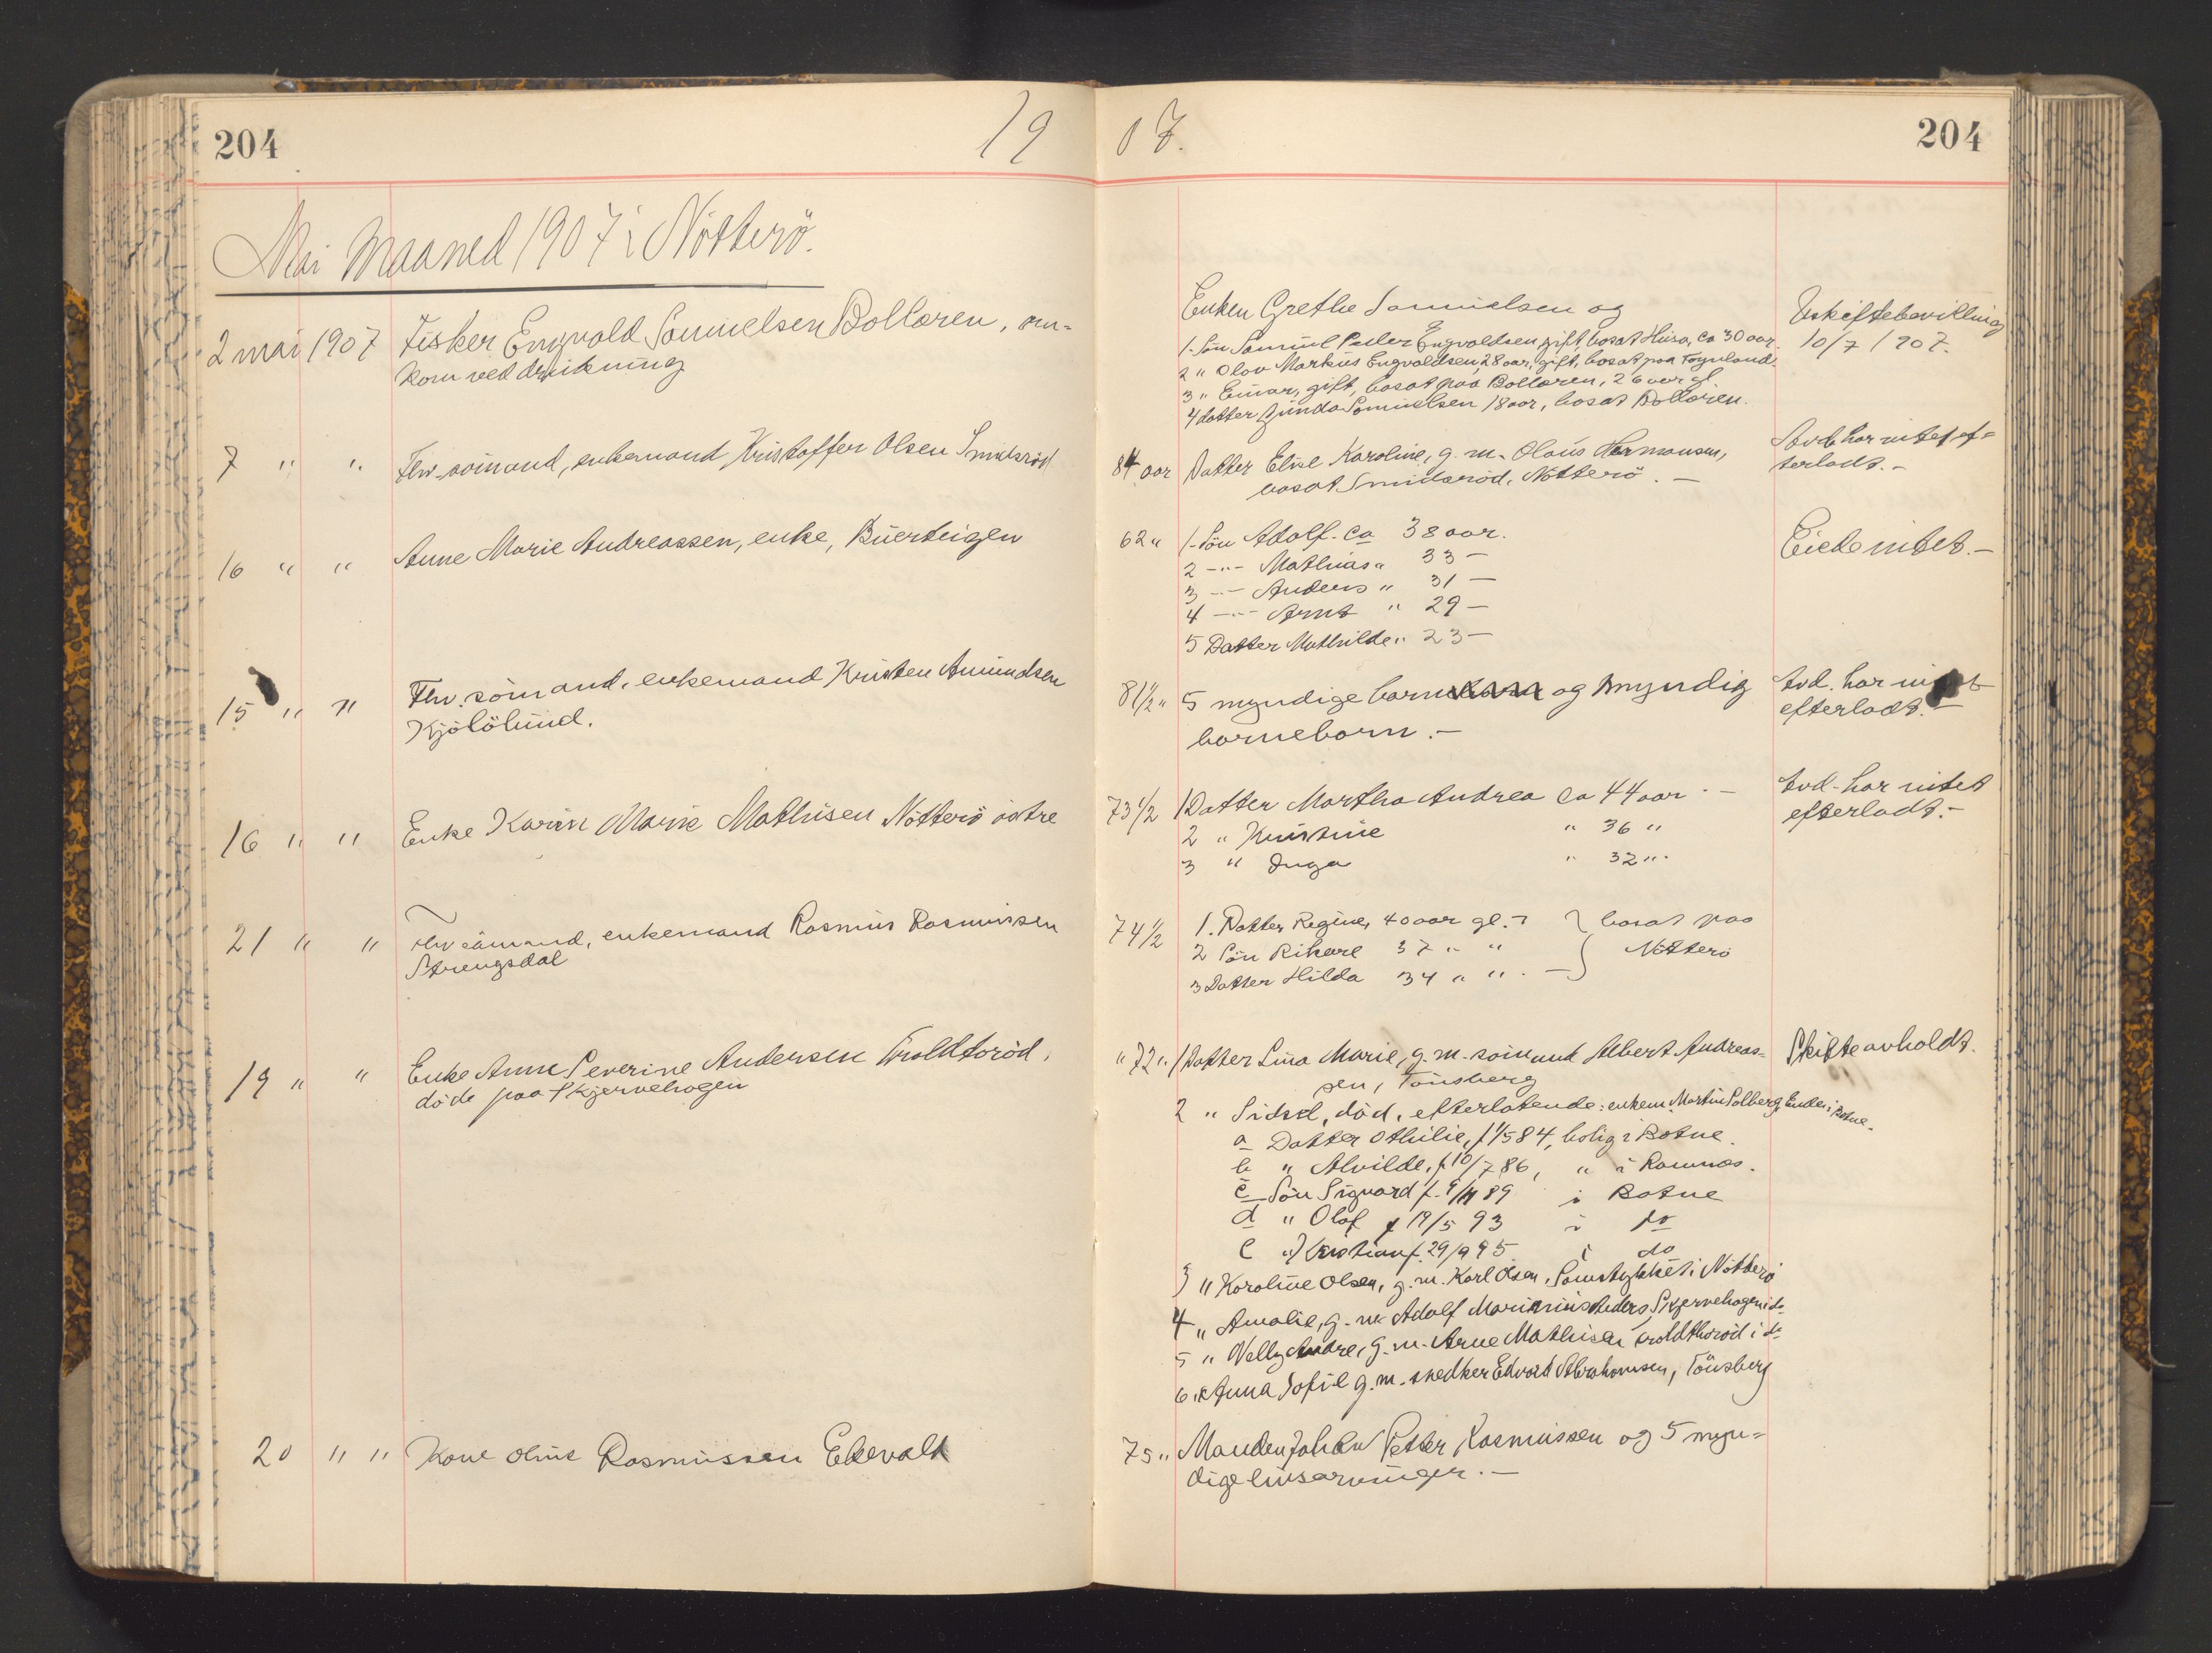 204
1907.
204
Mai Maaned 1907 i Nötterö.
2 mai 1907 Fisker Engvald Samuelsen Bollæren, om-
kom ved drukning
Enken Grethe Samuelsen og
1. Sön Samuel Peder Engvaldsen, gift, bosat Husø, ca 30 aar.
2 " Olav Markus Engvaldsen, 28 aar, gift, bosat paa Föynland.
3 " Einar, gift, bosat paa Bollæren, 26 aar gl.
4 datter Gunda Samuelsen 18 aar, bosat Bollæren.
Uskiftebevilling
10/7 1907.
7 " " Fhv. sömand, enkemand Kristoffer Olsen Smidsröd
84 aar Datter Elise Karoline, g. m. Olaus Hermansen,
bosat Smidsröd, Nötterö. —
Avd. har intet ef-
terladt. -
16 " " Anne Marie Andreassen, enke, Buerteigen
62 " 1. Sön Adolf. ca 38 aar.
2 -"- Mathias " 33 —
3 -"- Anders " 31 —
4 -"- Arnt " 29 —
5 Datter Mathilde " 23 —
Eiede intet. -
15 " " Fhv. sömand, enkemand Kristen Amundsen
Kjölölund.
81 1/2 " 5 myndige barn og myndig
barnebarn. —
Avd. har intet
efterladt. -
16 " " Enke Karen Marie Mathisen Nötterö östre
73 1/2 1 Datter Martha Andrea ca 44 aar. —
2 " Kristine " 36 "
3 " Inga " 32 " .
Avd. har intet
efterladt. -
21 " " Fhv sömand, enkemand Rasmus Rasmussen
Strengsdal
74 1/2 1. Datter Regine, 40 aar gl. bosat paa
2 Sön Rikard 37 " " Nötterö
3 Datter Hilda 34 " " . —
19 " " Enke Anne Severine Andersen Troldtoröd,
döde paa Skjervehagen
" 72 " 1 Datter Lina Marie, g. m. sömand Albert Andreas-
sen, Tönsberg
2 " Sidsel, död, efterlatende: enkem. Martin Solberg, i Botne.
a Datter Othilie, f 1/5 84, bolig i Botne.
b " Alvilde, f. 10/7 86, " i Ramnæs.
c Sön Sigvard f. 9/11 89 i Botne
d " Olaf f 19/5 93 i do
e " Kristian f. 29/9 95 i do
3 " Karoline Olsen, g. m. Karl Olsen, i Nötterö
4 " Amalie, g. m. Adolf Marinius Anders, Skjervehagen i do
5 " Nelly Andre, g. m. Arne Mathisen Troldthoröd i do
6 " Anna Sofie g. m. snedker Edvard Abrahamsen, Tönsberg
Skifte avholdt.
20 " " Kone Oline Rasmussen Ekevald
75 " Manden Johan Petter Rasmussen og 5 myn-
dige livsarvinger. —